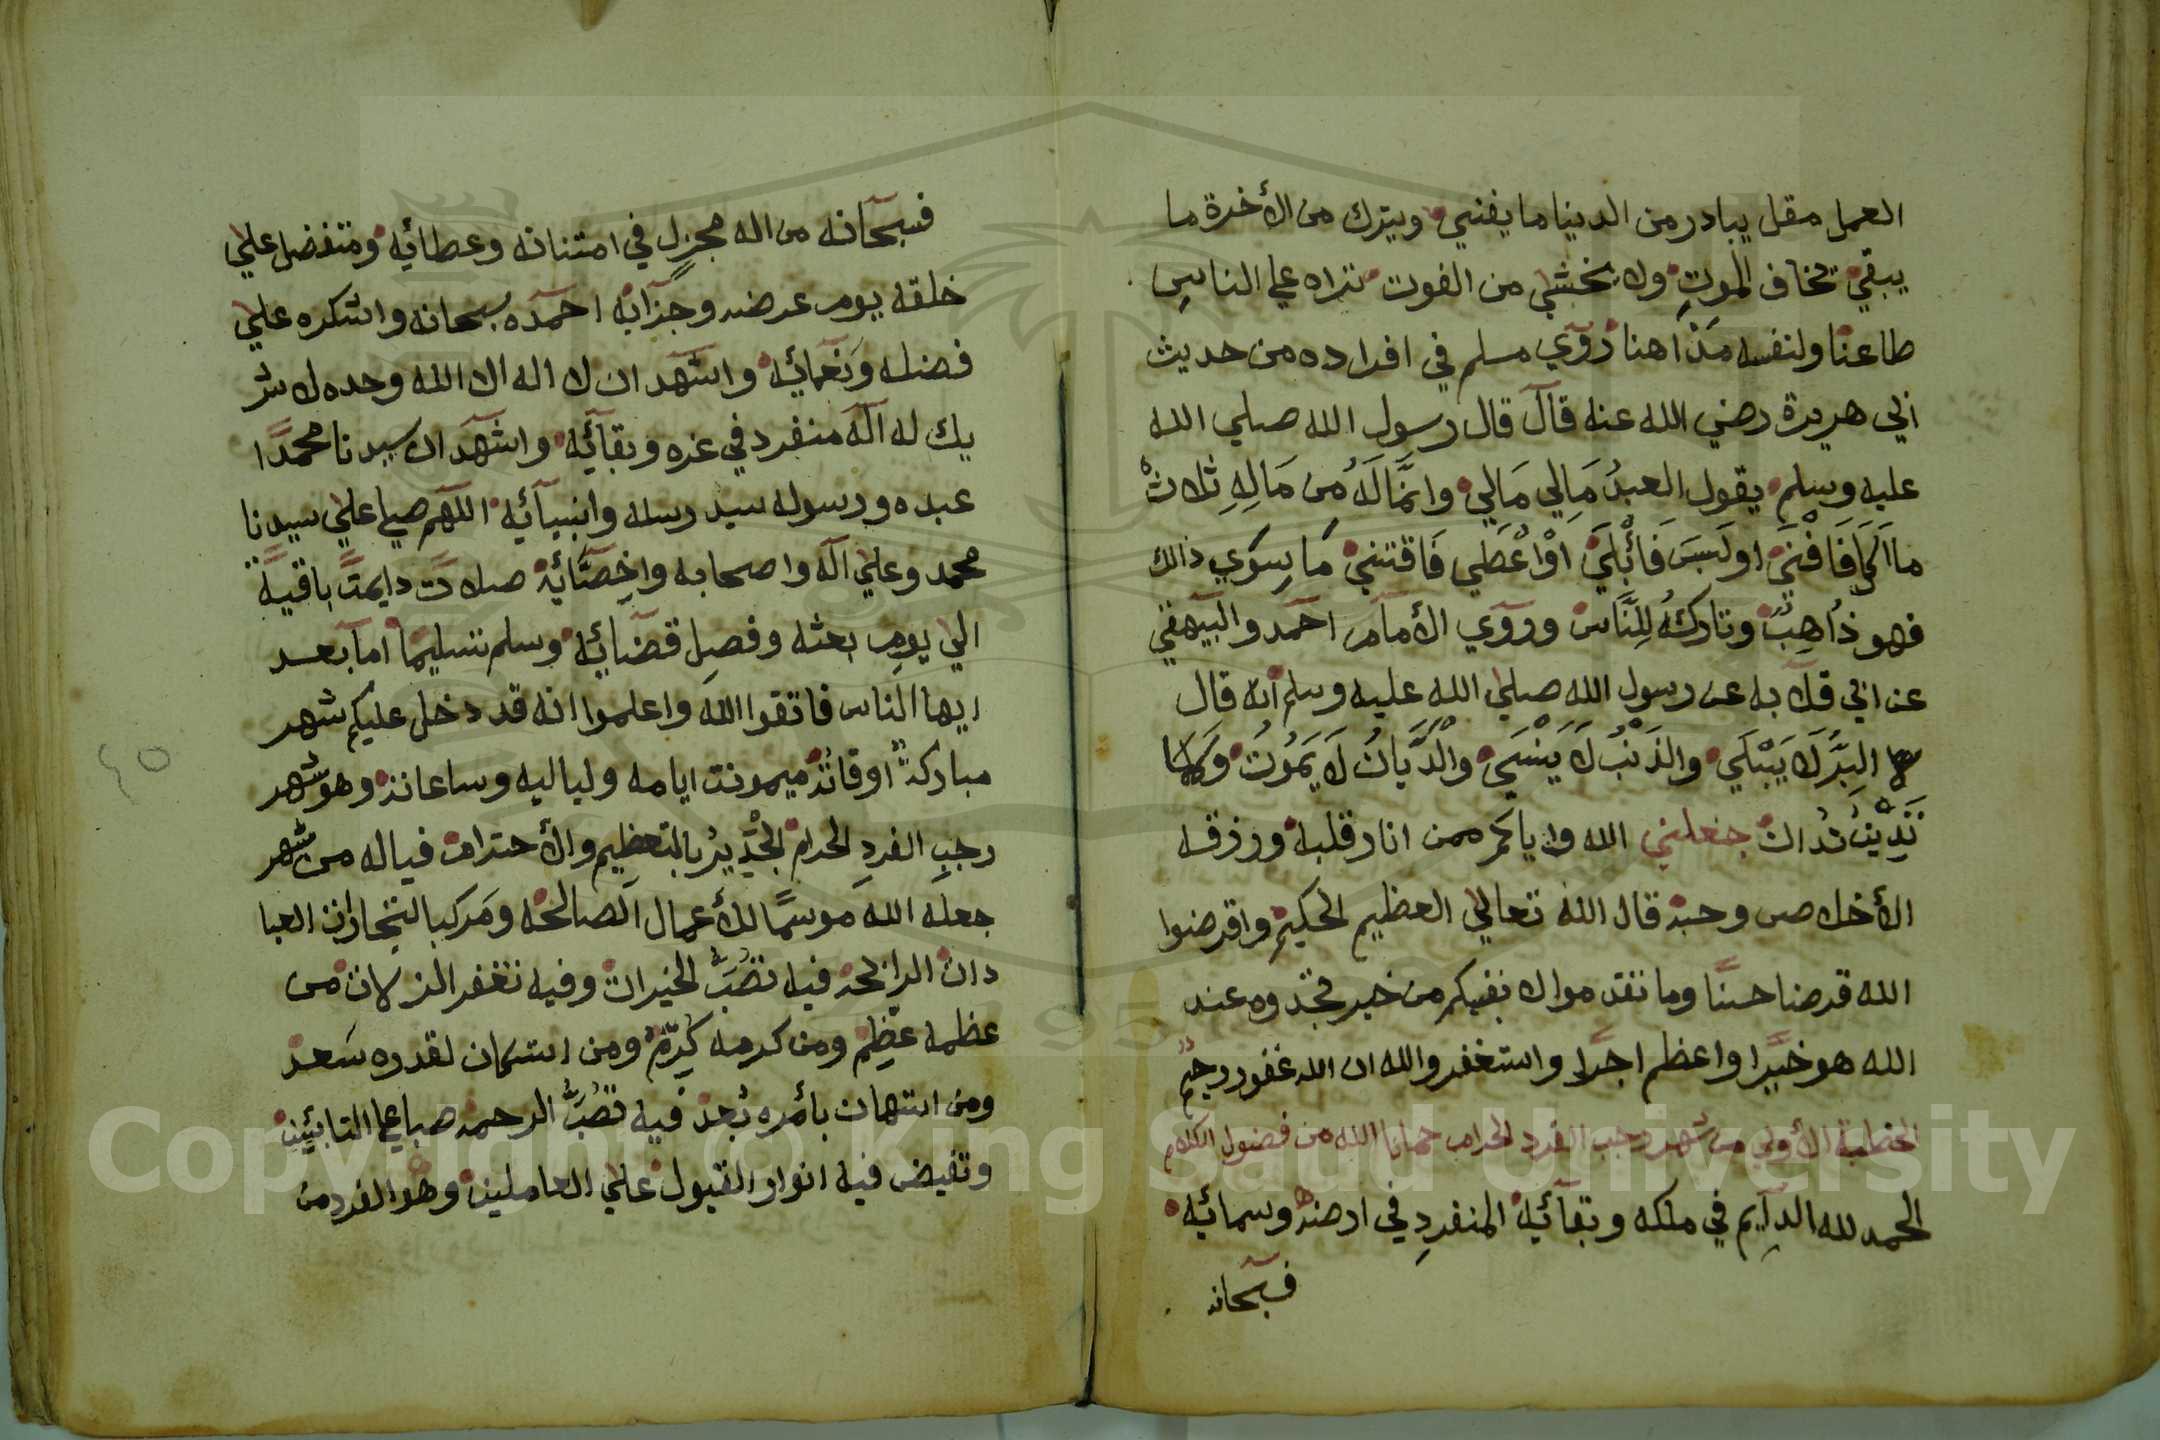 العمل مقل يبادر من الدنيا ما يفني ويترك من الأخرة ما
يبقي يخاف الموت ولا يخشي من الفوت تراه علي الناس
طاعنا ولنفسه مداهنا روي مسلم في افراده من حديث
ابي هريرة رضي الله عنه قال قال رسول الله صلي الله
عليه وسلم يقول العبد مَالي مَالي وانما لَهُ من مَالِهِ ثلاث
ما اكل فَافْنَي او لَبِسَ فَأَبْلَي اوْ اعْطَي فَاقتني مَا سِوَي ذالك
فهو ذاهِبٌ وتاركهُ لِلنَّاس وروي الأمام احمد والبيهقي
عن ابي قلابه عن رسول الله صلي الله عليه وسلم انه قال
البرُّ لَا يَبْلَي والذنْبُ لَا يَنْسَي والدَّيَانُ لَا يَمُوتُ وَكما
تَدِينُ تُدان جعلني الله واياكم ممن انار قلبه ورزقه
الأخلاص وحبه قال الله تعالي العظيم الحكيم واقرضوا
الله قرضا حسنًا وما تقدموا لانفسكم من خير تجدوه عند
الله هو خيرا واعظم اجرا واستغفروالله ان الله غفور رحيم
الخطبة الأولي من شهر رجب الفرد الحرام حمانا الله من فضول الكلام
الحمد لله الدايم في ملكه وبقائه المنفرد في ارضه وسمائه
فسبحانه
فسبحانه من اله مجزل في امتنانه وعطائه ومتفضل علي
خلقه يوم عرضه وجزايه احمده سبحانه واشكره علي
فضله ونعمائه واشهد ان لا اله الا الله وحده لا شر
يك له اله منفرد في عزه وبقائه واشهد ان سيدنا محمدًا
عبده ورسوله سيد رسله وانبيائه اللهم صلي علي سيدنا
محمد وعلي اله واصحابه واخصائه صلات دايمتً باقيةً
الي يوم بعثه وفصل قضائه وسلم تسليمًا اما بعد
ايها الناس فاتقوا الله واعلموا انه قد دخل عليكم شهر
مباركة اوقاته ميمونت ايامه ولياليه وساعاته وهو شهر
رجب الفرد الحرام الجدير بالتعظيم والأحترام فياله من شهر
جعله الله موسمًا للأعمال الصالحه ومَركبا لتجارات العبا
دات الرابحه فيه تصب الخيرات وفيه تغفر الزلات من
عظمه عظم ومن كرمه كرّم ومن استكان لقدره سَعد
ومن استهان بأمره بُعد فيه تصُبُّ الرحمه صبا علي التائبين
وتفيض فيه انوار القبول علي العاملين وهو الفرد من
٤٥
Copyright © King Saud University
1957